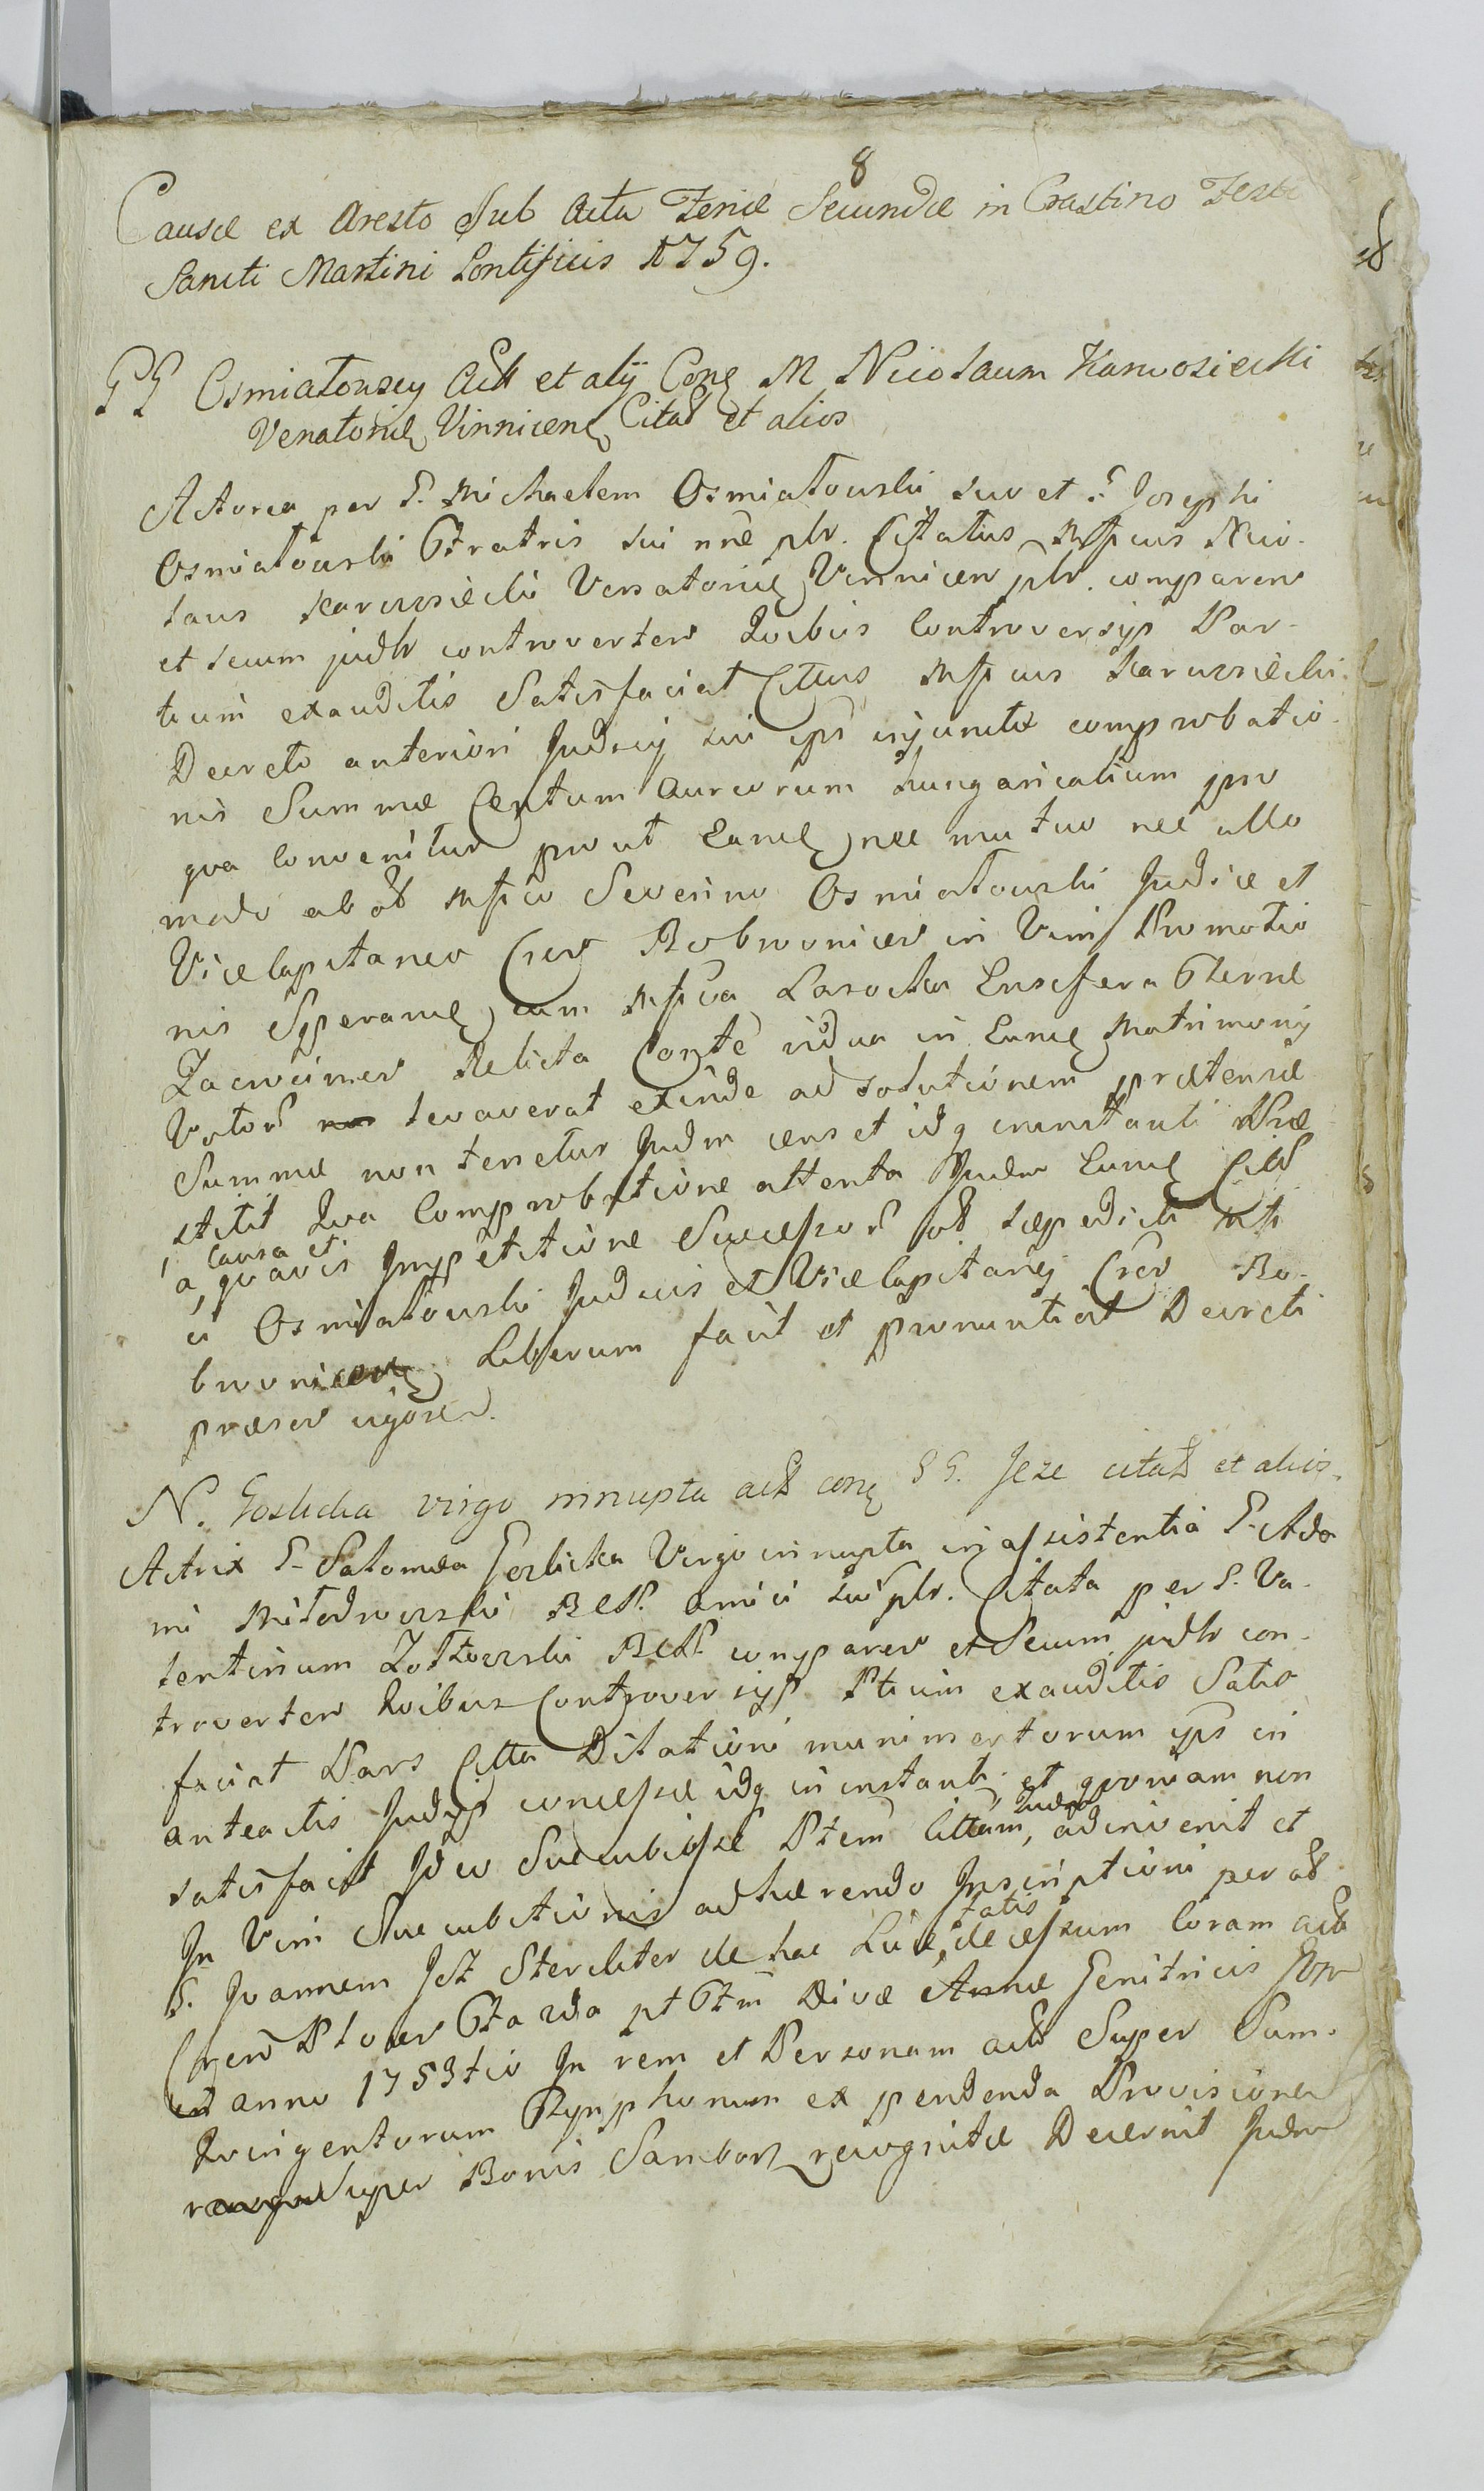 8
Causæ ex Aresto Sub Actu Feriæ Secundæ in Crastino Festi
Sancti Martini Pontificis 1759.
GG Osmiałowscy Act et alij Cong M Nicolaum Karwosiecki
Venatorem Vinnicen Citat et alios
Actorea per G. Michaelem Osmiałowski suo et G. Josephi
Osmiałowski Fratris sui nne plr. Citatus Mfcus Nico-
laus Karwosiecki Venatoriæ Vinnicen plr. comparen
et secum judlr controverten Quibus Controversijs Par-
tium exauditis Satisfaciat Cittus Mfcus Karwosiecki
Decreto anteriori Judicij sui ipsi injunctæ comprobatio-
nis Summæ Centum Aureorum hungaricalium pro
qua Convenitur prout Eance nec mutuo nec ullo
modo ab olt Mfco Severino Osmiałowski Judice et
Vicecapitaneo Cren Bobrownicen in Vim Promotio
nis Sperance cum Mfca Lasocka Ensifera Terræ
Zacrocimen Relicta Conte vidua in Eunce Matrimonij
Votor levaverat exinde ad solutionem prætensæ
Summæ non tenetur Judm cens et idq in instanti Præ
stitit Qua Comprobatione attenta Judm Eunce Citt
a, causa et quavis Impetitione Successor olt sæpedicti Mfi
ci Osmiałowski Judicis et Vicecapitanej Cren Bo-
brownicen Liberum facit et pronuntiat Decreti
præsen vigore.
N. Goslicka virgo innupta act cong GG. Jeże citat et alios.
Actrix G. Salomea Goslicka Virgo innupta in assistentia G. Ada
mi Miłodrowski BCP. amici sui plr. Citata per G. Va-
lentinum Zołtowski BCP comparen et Secum judlr con-
troverten Quibus Controversijs Ptium exauditis Satis
faciat Pars Citta Dilationi munimentorum ipsi in
anteactis Judijs concessæ idq in instanti, et quoniam non
satisfacit Ideo Succubuisse Ptem Cittam, Judm adinvenit et
In Vim Succubitionis adhærendo Inscriptioni per olt
G. Joannem Jeż Steriliter de hac Luce fatis decessum Coram act
Cren Plocen Fta 2da pt Ftm Divæ Annæ Genitricis
anno 1753tio In rem et Personam act Super Sum.
Quingentorum Tynphonum ex pendenda Provisione
Super Bonis Sambon recognitæ Decernit Judm